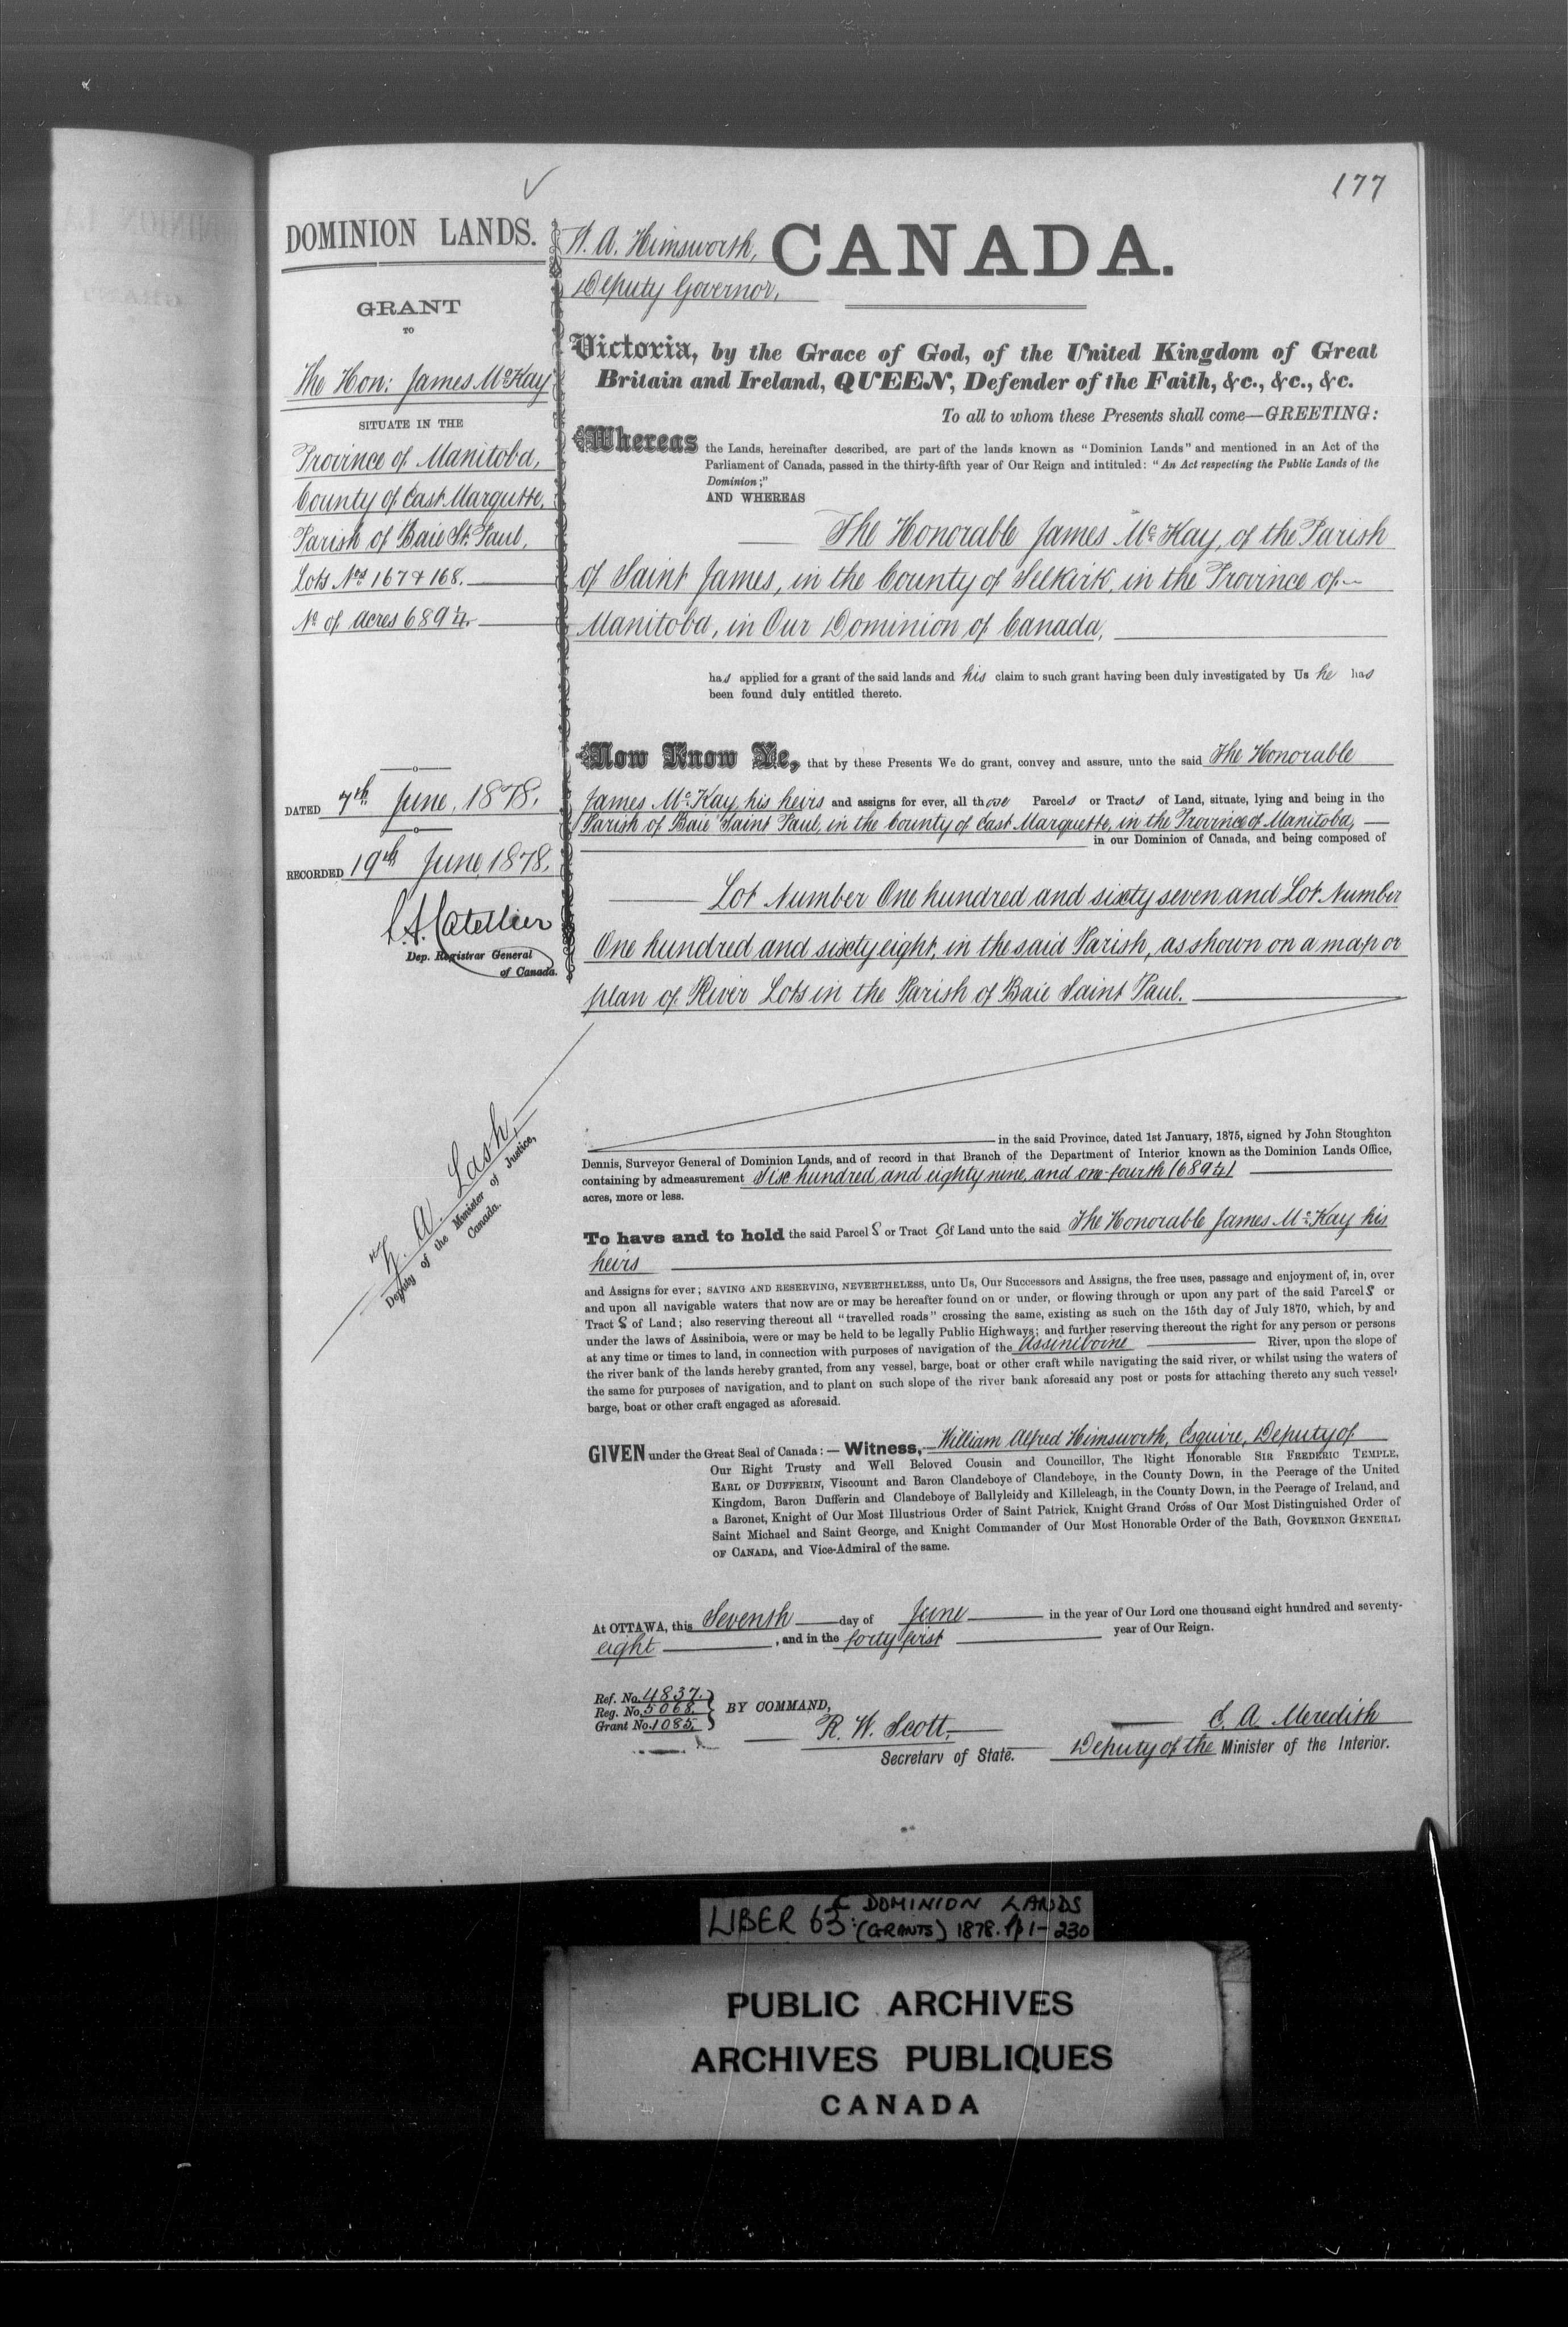 177
DOMINION LANDS.
GRANT
TO
The Hon: James McKay
SITUATE IN THE
Province of Manitoba,
County of East Marquette,
Parish of Baie St. Paul,
Lots Nos 167 & 168.
No of Acres 689¼.
DATED 7th June, 1878.
RECORDED 19th June, 1878.
L.A. Catellier
Dep. Registrar General
of Canada.
Z. A. Lash,
Deputy of the Minister of Justice,
Canada.
W. A. Himsworth,
Deputy Governor,
CANADA.
Victoria, by the Grace of God, of the United Kingdom of Great
Britain and Ireland, QUEEN, Defender of the Faith, &c., &c., &c.
To all to whom these Presents shall come—GREETING:
Whereas the Lands, hereinafter described, are part of the lands known as "Dominion Lands" and mentioned in an Act of the
Parliament of Canada, passed in the thirty-fifth year of Our Reign and intituled: "An Act respecting the Public Lands of the
Dominion;"
AND WHEREAS
The Honorable James McKay, of the Parish
of Saint James, in the County of Selkirk, in the Province of
Manitoba, in Our Dominion of Canada,
has applied for a grant of the said lands and his claim to such grant having been duly investigated by Us he has
been found duly entitled thereto.
Now Know Ye, that by these Presents We do grant, convey and assure, unto the said The Honorable
James McKay, his heirs and assigns for ever, all those Parcels or Tracts of Land, situate, lying and being in the
Parish of Baie Saint Paul, in the County of East Marquette, in the Province of Manitoba,
in our Dominion of Canada, and being composed of
Lot Number One hundred and sixty seven and Lot Number
One hundred and sixty eight, in the said Parish, as shown on a map or
plan of River Lots in the Parish of Baie Saint Paul.
in the said Province, dated 1st January, 1875, signed by John Stoughton
Dennis, Surveyor General of Dominion Lands, and of record in that Branch of the Department of Interior known as the Dominion Lands Office,
containing by admeasurement Six hundred and eighty nine, and one-fourth (689¼)
acres, more or less.
To have and to hold the said Parcel S or Tract S of Land unto the said The Honorable James McKay his
heirs
and Assigns for ever; SAVING AND RESERVING, NEVERTHELESS, unto Us, Our Successors and Assigns, the free uses, passage and enjoyment of, in, over
and upon all navigable waters that now are or may be hereafter found on or under, or flowing through or upon any part of the said Parcel S or
Tract S of Land; also reserving thereout all "travelled roads" crossing the same, existing as such on the 15th day of July 1870, which, by and
under the laws of Assiniboia, were or may be held to be legally Public Highways; and further reserving thereout the right for any person or persons
at any time or times to land, in connection with purposes of navigation of the Assiniboine River, upon the slope of
the river bank of the lands hereby granted, from any vessel, barge, boat or other craft while navigating the said river, or whilst using the waters of
the same for purposes of navigation, and to plant on such slope of the river bank aforesaid any post or posts for attaching thereto any such vessel,
barge, boat or other craft engaged as aforesaid.
GIVEN under the Great Seal of Canada:—Witness,—William Alfred Himsworth, Esquire, Deputy of
Our Right Trusty and Well Beloved Cousin and Councillor, The Right Honorable SIR FREDERIC TEMPLE,
EARL OF DUFFERIN, Viscount and Baron Clandeboye of Clandeboye, in the County Down, in the Peerage of the United
Kingdom, Baron Dufferin and Clandeboye of Ballyleidy and Killeleagh, in the County Down, in the Peerage of Ireland, and
a Baronet, Knight of Our Most Illustrious Order of Saint Patrick, Knight Grand Cross of Our Most Distinguished Order of
Saint Michael and Saint George, and Knight Commander of Our Most Honorable Order of the Bath, GOVERNOR GENERAL
OF CANADA, and Vice-Admiral of the same.
At OTTAWA, this Seventh day of June in the year of Our Lord one thousand eight hundred and seventy-
eight, and in the forty first year of Our Reign.
Ref. No. 4837.
Reg. No. 5068.
Grant No. 1085.
BY COMMAND,
R. W. Scott,
Secretary of State.
E. A. Meredith
Deputy of the Minister of the Interior.
LIBER 63: DOMINION LANDS
(GRANTS) 1878. pp 1-230
PUBLIC ARCHIVES
ARCHIVES PUBLIQUES
CANADA